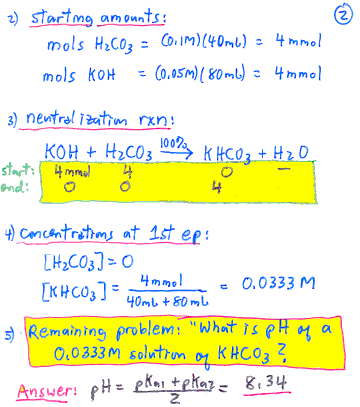 ②
2) starting amounts:
mols H₂CO₃ = (0.1M)(40mL) = 4mmol
mols KOH = (0.05M)(80mL) = 4mmol
3) neutralization rxn:
KOH + H₂CO₃ 100%→ KHCO₃ + H₂O
start: 4mmol 4 0 —
end: 0 0 4
4) concentrations at 1st ep:
[H₂CO₃] = 0
[KHCO₃] = 4mmol / 40mL + 80mL = 0.0333 M
5) Remaining problem: "What is pH of a
0.0333M solution of KHCO₃?
Answer: pH = pKa1 + pKa2 / 2 = 8.34